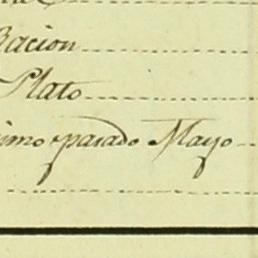 bacion
Plato
ximo pasado Mayo